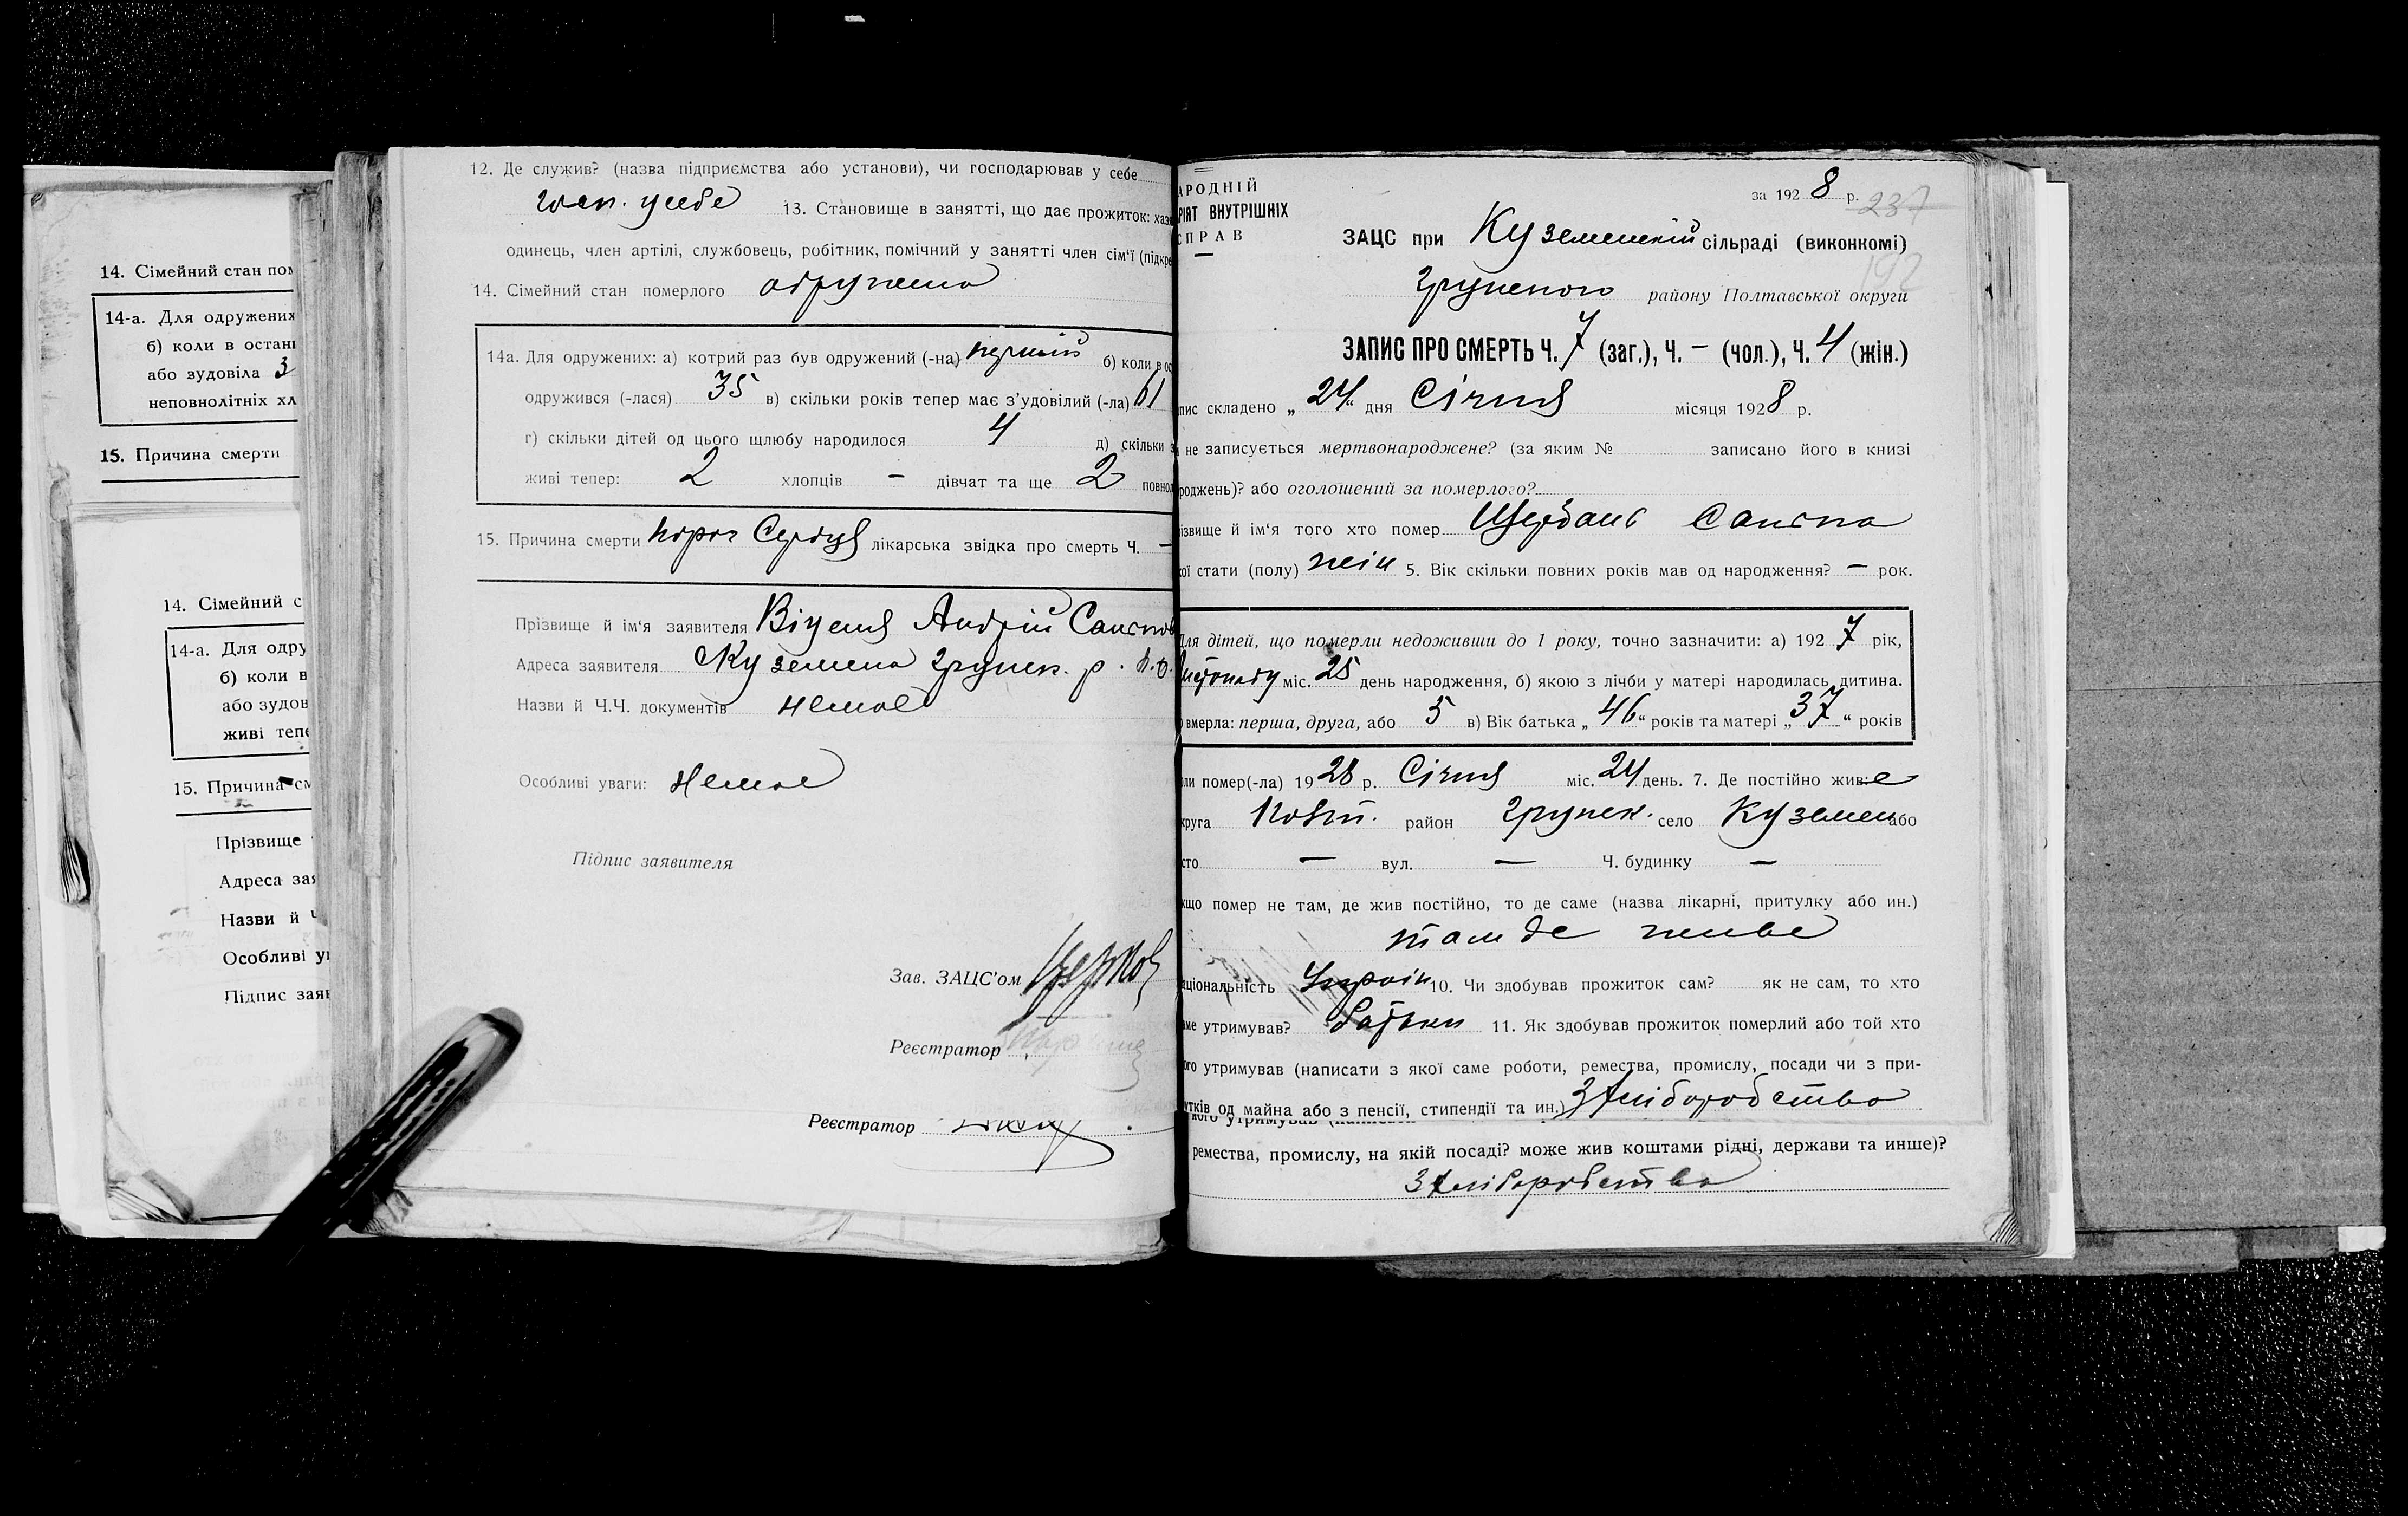 14. Сімейний стан пом
14-а. Для одружених
б) коли в остан
або зудовіла 3
неповнолітніх хл
15. Причина смерти
14. Сімейний с
14-а. Для одру
б) коли в
або зудов
живі тепе
15. Причина см
Прізвище
Адреса зая
Назви й Ч
Особливі ув
Підпис заяв
12. Де служив? (назва підприємства або установи), чи господарював у себе
госп. у себе 13. Становище в занятті, що дає прожиток: хазя
одинець, член артілі, службовець, робітник, помічний у занятті член сім'ї (підкре
14. Сімейний стан померлого одружена
14а. Для одружених: а) котрий раз був одружений (-на) перший б) коли в ос
одружився (-лася) 35 в) скільки років тепер має з'удовілий (-ла) 61
г) скільки дітей од цього шлюбу народилося 4 д) скільки з
живі тепер: 2 хлопців — дівчат та ще 2 повнол
15. Причина смерти порок Серця лікарська звідка про смерть Ч. —
Прізвище й ім'я заявителя Андрій
Адреса заявителя Куземена грунск. р. п.о.
Назви й Ч.Ч. документів немає
Особливі уваги: Немає
Підпис заявителя
Зав. ЗАЦС'ом
Реєстратор
Реєстратор
АРОДНІЙ
РІЯТ ВНУТРІШНІХ
СПРАВ
за 1928 р.
237
ЗАЦС при Куземенській сільраді (виконкомі)
192
грунского району Полтавської округи
ЗАПИС ПРО СМЕРТЬ Ч. 7 (заг.), Ч. — (чол.), Ч. 4 (жін.)
пис складено „ 24 “ дня Січня місяця 1928 р.
не записується мертвонароджене? (за яким № записано його в книзі
роджень)? або оголошений за померлого?
ізвище й ім'я того хто помер Щербань
кої стати (полу) жін 5. Вік скільки повних років мав од народження? — рок.
Для дітей, що померли недоживши до 1 року, точно зазначити: а) 1927 рік,
Листопаду міс. 25 день народження, б) якою з лічби у матері народилась дитина.
о вмерла: перша, друга, або 5 в) Вік батька „ 46 “ років та матері „ 37 “ років
оли помер(-ла) 1928 р. Січня міс. 24 день. 7. Де постійно жив: є
круга Полт. район грунск. село Куземен або
сто — вул. — Ч. будинку —
кщо помер не там, де жив постійно, то де саме (назва лікарні, притулку або ин.)
там де живе
аціональність Україн 10. Чи здобував прожиток сам? як не сам, то хто
аме утримував? батьки 11. Як здобував прожиток померлий або той хто
ого утримував (написати з якої саме роботи, ремества, промислу, посади чи з при-
утків од майна або з пенсії, стипендії та ин.) З хліборобства
кого утримував (написати
ремества, промислу, на якій посаді? може жив коштами рідні, держави та инше)?
З хліборобства